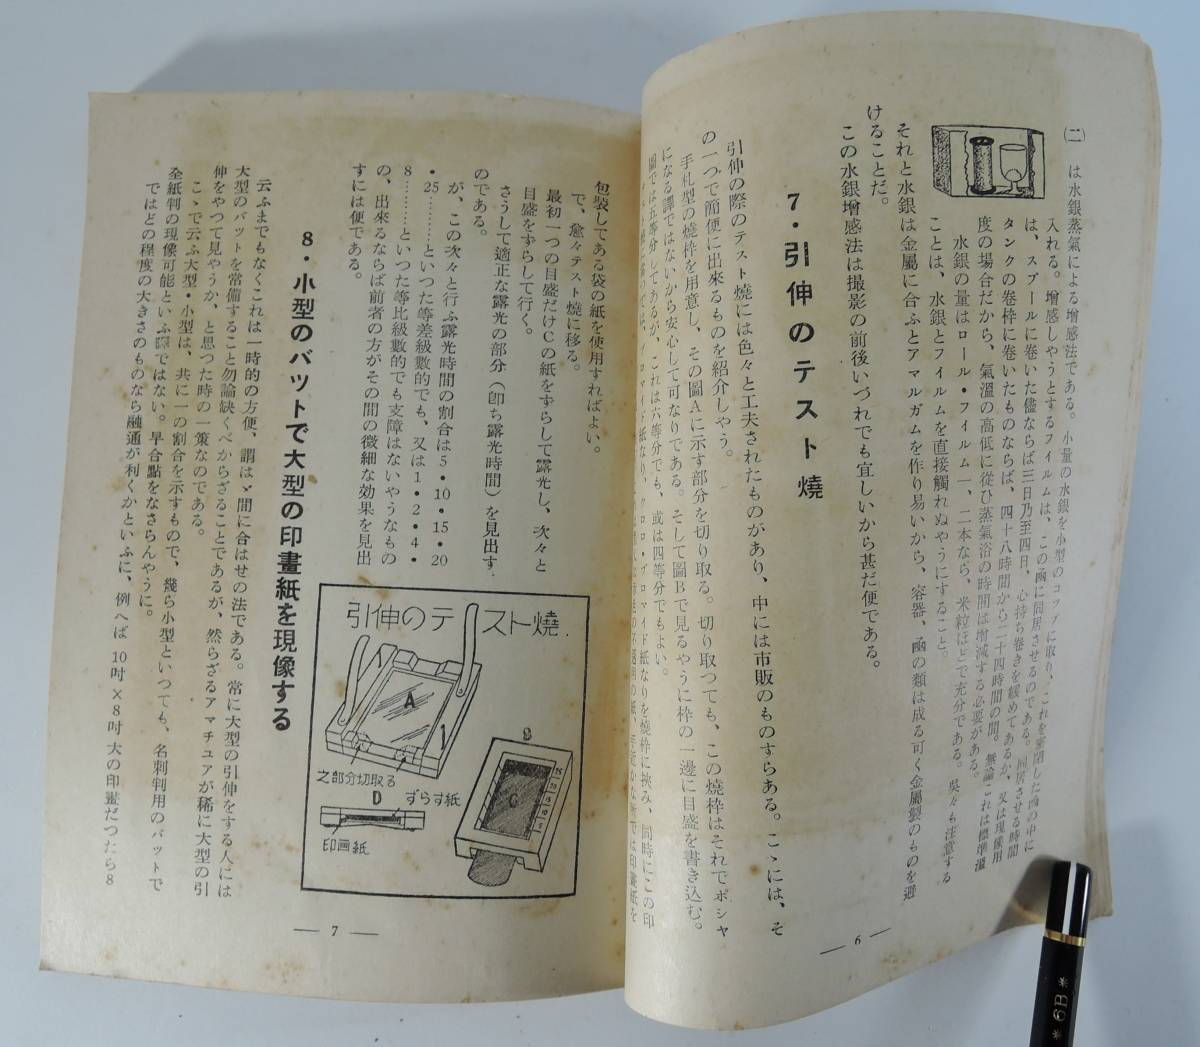 (二) は水銀蒸氣による增感法である。小量の水銀を小型のコップに取り、これを密閉した凾の中に
入れる。增感しやうとするフイルムは、この凾に同居させるのである。同居させる時間
は、スプールに巻いた儘ならば三日乃至四日、心持ち巻きを緩めてあるか、又は現像用
タンクの巻枠に巻いたものならば、四十八時間から二十四時間の間。無論これは標準溫
度の場合だから、氣溫の高低に從ひ蒸氣浴の時間は增減する必要がある。
水銀の量はロール・フイルム一、二本なら、米粒ほどで充分である。吳々も注意する
ことは、水銀とフイルムを直接觸れぬやうにすること。
それと水銀は金屬に合ふとアマルガムを作り易いから、容器、凾の類は成る可く金屬製のものを避
けることだ。
この水銀增感法は撮影の前後いづれでも宜しいから甚だ便である。
7・引伸のテスト燒
引伸の際のテスト燒には色々と工夫されたものがあり、中には市販のものすらある。こゝには、そ
の一つで簡便に出來るものを紹介しやう。
手札型の燒枠を用意し、その圖Aに示す部分を切り取る。切り取つても、この燒枠はそれでポシャ
になる譯ではないから安心して可なりである。そして圖Bで見るやうに枠の一邊に目盛を書き込む。
圖では五等分してあるが、これは六等分でも、或は四等分でもよい。
ブロマイド紙なり、クロロ・ブロマイド紙なりを燒枠に挾み、同時にこの印
— 6 —
包裝してある袋の紙を使用すればよい。
で、愈々テスト燒に移る。
最初一つの目盛だけCの紙をずらして露光し、次々と
目盛をずらして行く。
さうして適正な露光の部分(卽ち露光時間)を見出す
のである。
が、この次々と行ふ露光時間の割合は5・10・15・20
・25…………といつた等差級數的でも、又は1・2・4・
8…………といつた等比級數的でも支障はないやうなもの
の、出來るならば前者の方がその間の微細な効果を見出
すには便である。
引伸のテスト燒
A
B
C
之部分切取る
D
ずらす紙
印画紙
8・小型のバットで大型の印畫紙を現像する
云ふまでもなくこれは一時的の方便、謂はゞ間に合はせの法である。常に大型の引伸をする人には
大型のバットを常備すること勿論缺くべからざることであるが、然らざるアマチュアが稀に大型の引
伸をやつて見やうか、と思つた時の一策なのである。
こゝで云ふ大型・小型は、共に一の割合を示すもので、幾ら小型といつても、名刺判用のバットで
全紙判の現像可能といふ譯ではない。早合點をなさらんやうに。
ではどの程度の大きさのものなら融通が利くかといふに、例へば 10吋×8吋 大の印畫だつたら8
— 7 —
* 6B *